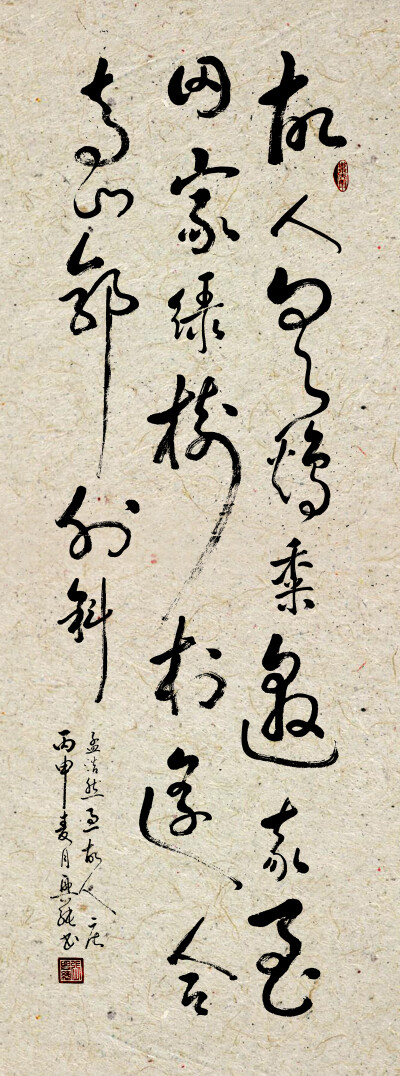 故人具鷄黍邀我至
田家绿樹村邊合
青山郭外斜
孟浩然过故人庄
丙申夏月书